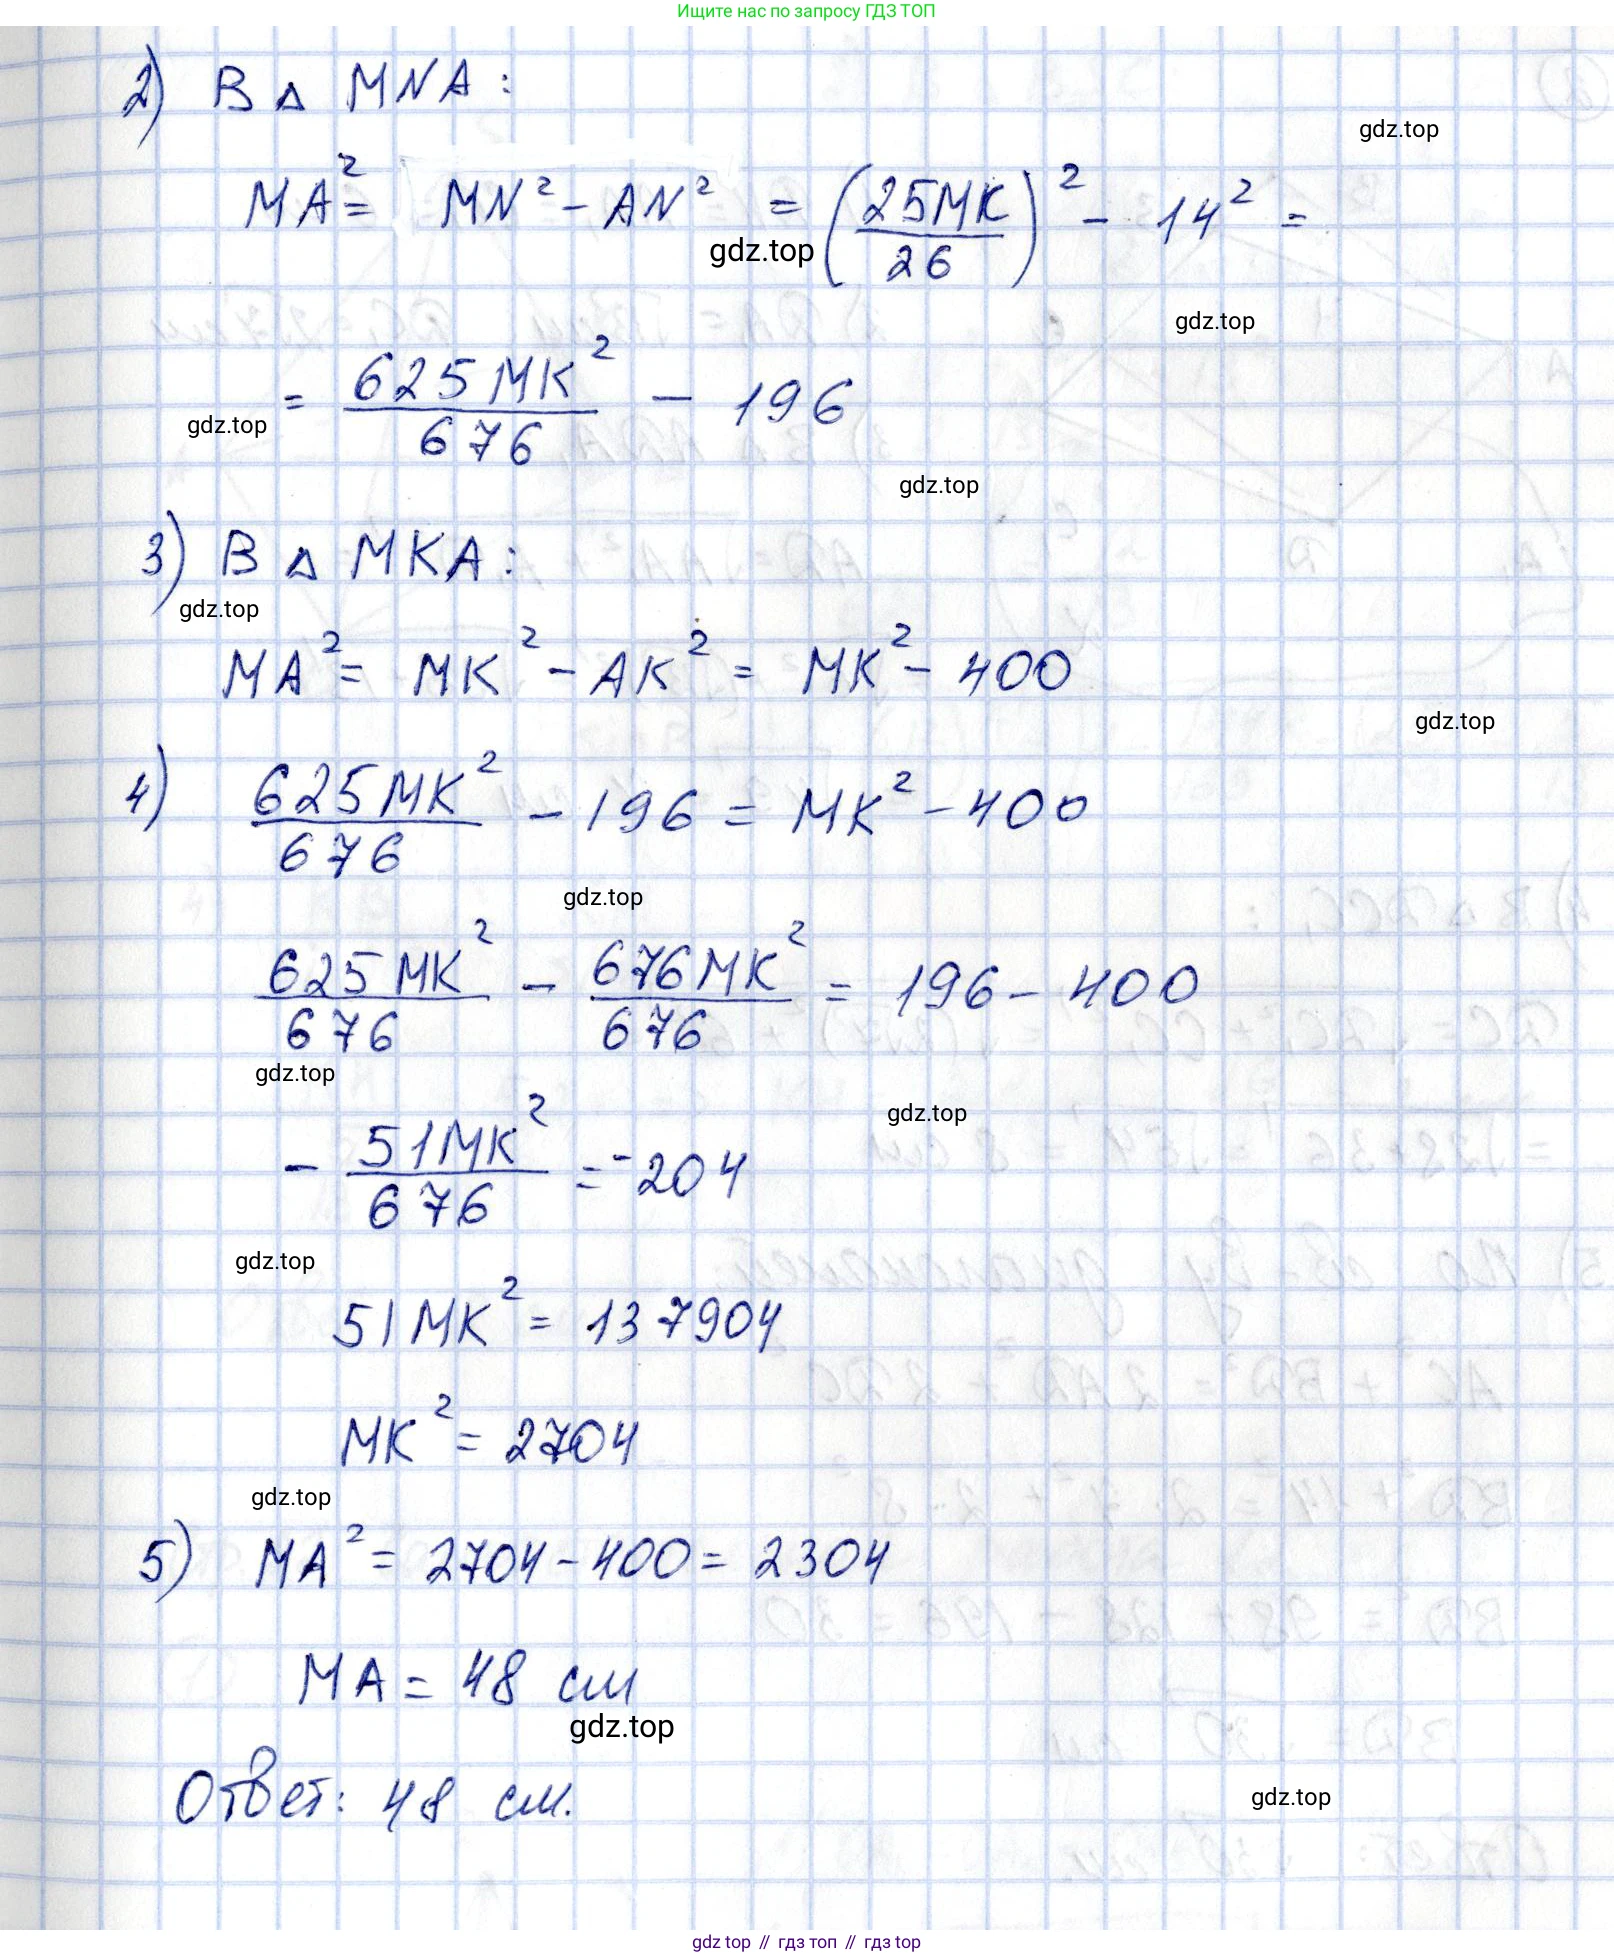 Ищите нас по запросу ГДЗ ТОП
2) В △ MNA:
gdz.top
MA² = MN² - AN² = (25MK/26)² - 14² =
gdz.top
gdz.top
= 625MK²/676 - 196
gdz.top
gdz.top
3) В △ MKA:
gdz.top
MA² = MK² - AK² = MK² - 400
gdz.top
4) 625MK²/676 - 196 = MK² - 400
gdz.top
625MK²/676 - 676MK²/676 = 196 - 400
gdz.top
gdz.top
- 51MK²/676 = -204
gdz.top
51MK² = 137904
MK² = 2704
gdz.top
5) MA² = 2704 - 400 = 2304
MA = 48 см
gdz.top
Ответ: 48 см.
gdz.top
gdz top // гдз топ // gdz top